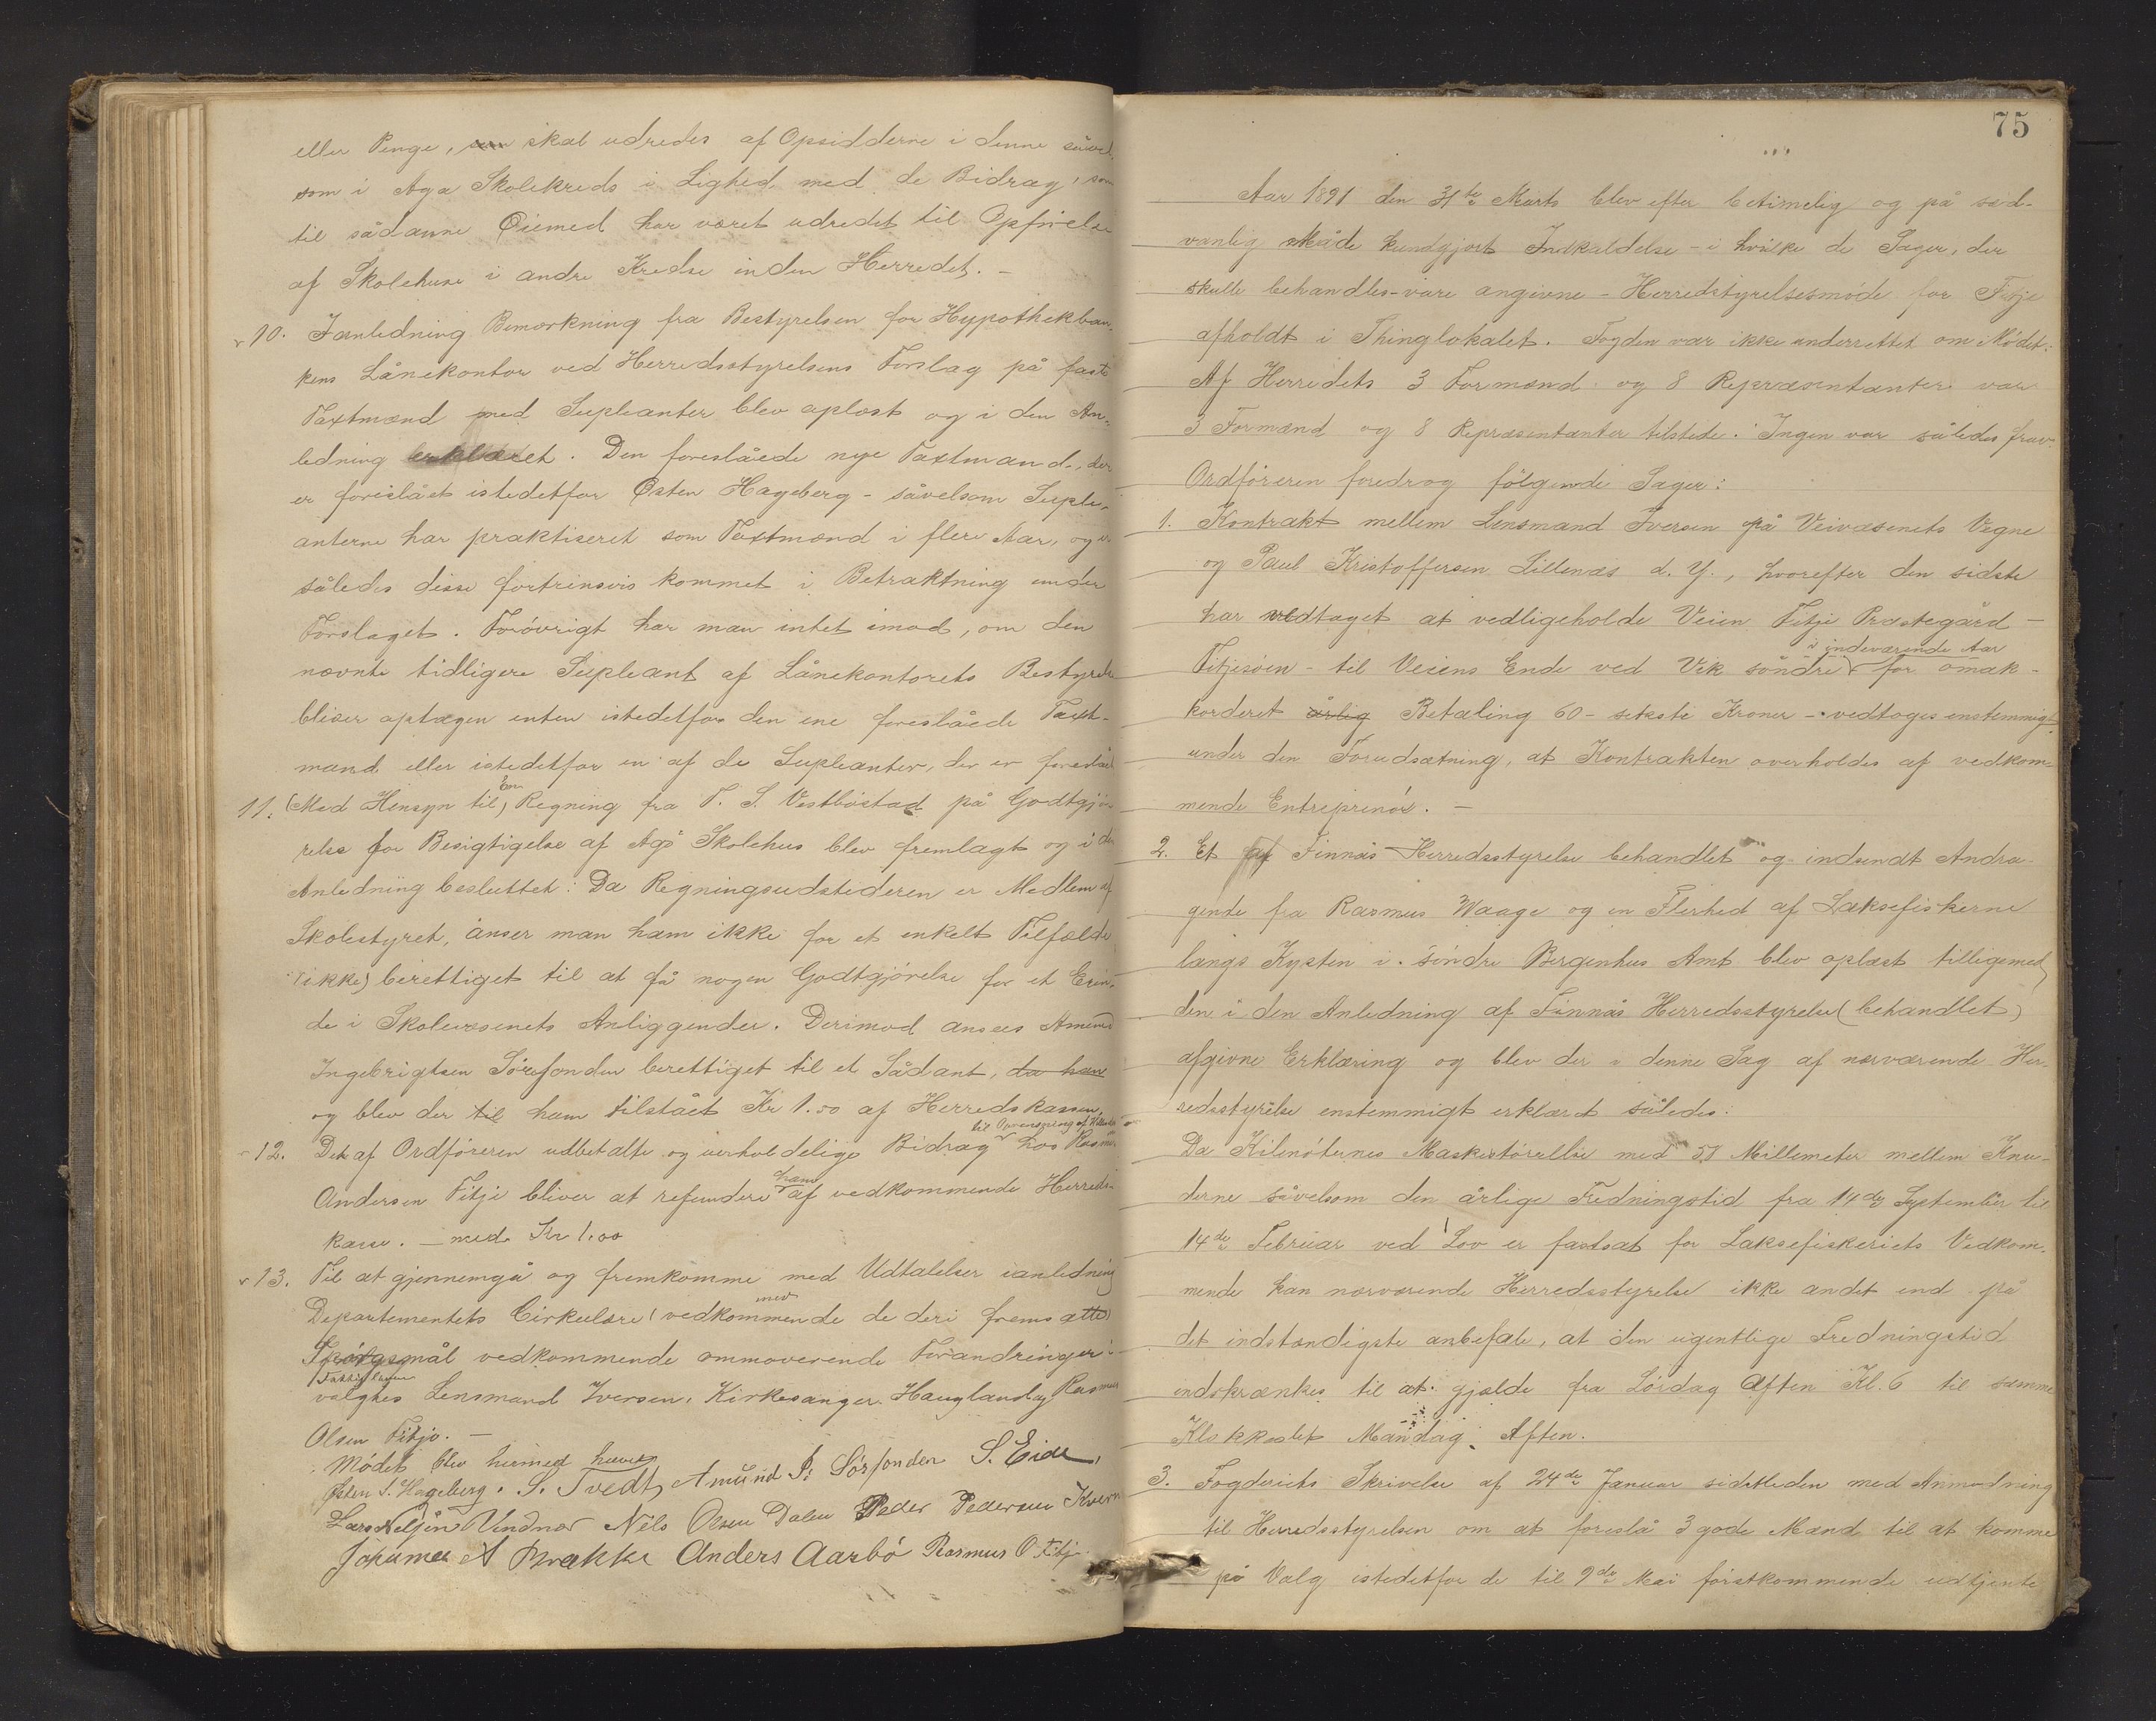 eller Penge, som skal udredes af Opsidderne i denne såvel
som i Aga Skolekreds i Lighed med de Bidrag, som
til sådanne Øiemed har været udredet til Opførelse
af Skolehuse i andre Kredse inden Herredet. –
10. Ianledning Bemærkning fra Bestyrelsen for Hypothekban-
kens Lånekontor ved Herredsstyrelsens Forslag på faste
Taxtmænd med Supleanter blev oplæst og i den An-
ledning erklæret. Den foreslåede nye Taxtmand, der
er foreslået istedetfor Østen Hageberg – såvelsom Suple-
anterne har praktiseret som Taxtmænd i flere Aar, og er
således disse fortrinsvis kommet i Betraktning under
Forslaget. Forøvrigt har man intet imod, om den
nævnte tidligere Supleant af Lånekontorets Bestyrelse
bliver optagen enten istedetfor den ene foreslåede Taxt-
mand eller istedetfor en af de Supleanter, der er foreslået
11. (Med Hensyn til) En Regning fra T. S. Vestbøstad på Godtgjø-
relse for Besigtigelse af Agø Skolehus blev fremlagt og i den
Anledning besluttet: Da Regningsudstederen er Medlem af
Skolestyret, anser man ham ikke for et enkelt Tilfælde
(ikke) berettiget til at få nogen Godtgjørelse for et Eren-
de i Skolevæsenets Anliggender. Derimod ansees Amund
Ingebrigtsen Sørfonden berettiget til et Sådant, da han
og blev der til ham tilstået Kr 1.00 af Herredskassen.
12. Det af Ordføreren udbetalte og uerholdelige Bidrag til Oprensning af hos Rasmus
Andersen Fitje bliver at refundere ham af vedkommende Herreds-
kasse. – med Kr 1.00
13. Til at gjennemgå og fremkomme med Udtalelser ianledning
Departementets Cirkulære (vedkommende med de deri fremsatte)
Spørgsmål vedkommende ommoverende Forandringer i
Fattigloven
valgtes Lensmand Iversen, Kirkesanger Haugland og Rasmus
Olsen Fitje. –
Mødet blev hermed hævet
Østen S. Hageberg. S. Tvedt, Amund I. Sørfonden S. Eide,
Lars Neljin Vindnes Nils Olsen Dalen Peder Pedersen Kvern
Johannes A Brakke Anders Aarbø Rasmus O Fitje
75
Aar 1891 den 31te Marts blev efter betimelig og på sæd-
vanlig Måde kundgjort Indkaldelse – i hvilke de Sager, der
skulle behandles – vare angivne – Herredstyrelsesmøde for Fitje
afholdt i Thinglokalet. Fogden var ikke underrettet om Mødet.
Af Herredets 3 Formænd og 8 Repræsentanter var
3 Formænd og 8 Repræsentanter tilstede. Ingen var således frav.
Ordføreren foredrog følgende Sager:
1. Kontrakt mellem Lensmand Iversen på Veivæsenets Vegne
og Paul Kristoffersen Lillenæs d. Y., hvorefter den sidste
har vedtaget at vedligeholde Veien Fitje Præstegård –
Fitjesøen – til Veiens Ende ved Vik søndre i indeværende Aar for omak-
korderet årlig Betaling 60 – sekste Kroner – vedtoges enstemmigt
under den Forudsætning, at Kontrakten overholdes af vedkom-
mende Entreprenør. –
2. Et af Finnås Herredsstyrelse behandlet og indsendt Andra-
gende fra Rasmus Waage og en Flerhed af Laksefiskerne
langs Kysten i søndre Bergenhus Amt blev oplæst tilligemed
den i den Anledning af Finnås Herredsstyrelse (behandlet)
afgivne Erklæring og blev der i denne Sag af nærværende Her-
redsstyrelse enstemmigt erklæret således:
Da Kilenøternes Maskestørellse med 57 Millemeter mellem Knu-
derne såvelsom den årlige Fredningstid fra 14de September til
14de Februar ved Lov er fastsat for Laksefiskeriets Vedkom-
mende kan nærværende Herredsstyrelse ikke andet end på
det indstændigste anbefale, at den ugentlige Fredningstid
indskrænkes til at gjælde fra Lørdag Aften Kl. 6 til samme
Klokkeslet Mandag Aften.
3. Fogderiets Skrivelse af 24de Januar sidstleden med Anmodning
til Herredsstyrelsen om at foreslå 3 gode Mænd til at komme
på Valg istedetfor de til 9de Mai førstkommende udtjente